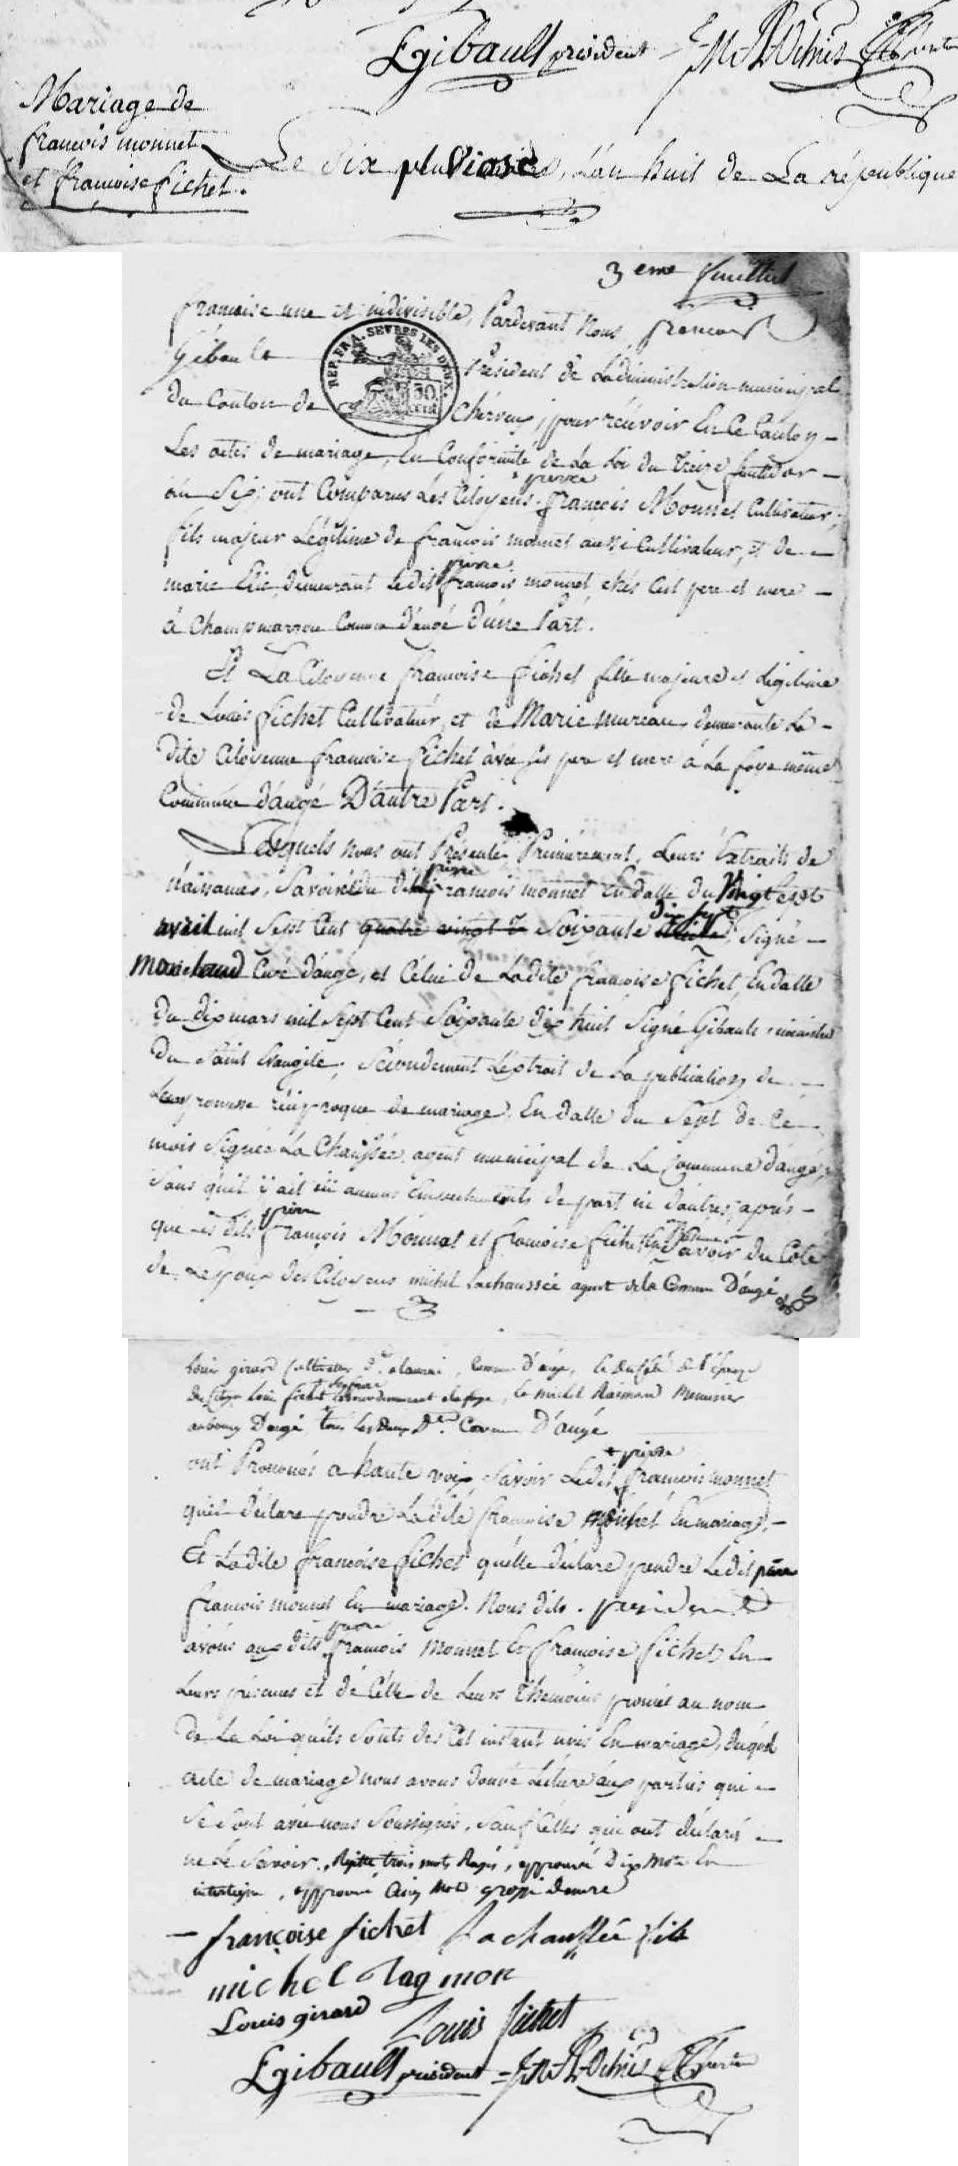 Egibault président
Mariage de
françois monnet
et françoise fichet.
Le Dix pluviose, L'an huit de La république
3 eme feuillet
françoise une et indivisible, Pardevant Nous, françois
Gibault
REP. FRA. SEVRES LES DEUX
Président de Ladministration municipal
du Canton de Cherveux, pour recevoir En Ce Canton
Les actes de mariage, En Conformité de La Loi du Treize fructidor
an Six; ont Comparus Les Citoyens pierre françois Monnet Cultivateur,
fils majeur Légitime de françois monnet aussi Cultivateur, et de
marie demeurant Ledit pierre françois monnet chés Cest pere et mere
à Champmarzou Commune d'augé D'une Part.
Et La Citoyenne françoise fichet fille majeure et Légitime
de Louis fichet Cultivateur, et de Marie mureau, demeurante La
Dite Citoyenne françoise fichet avec ses pere et mere à La foye même
Commune d'augé D'autre Part.
Lesquels nous ont Présentés Prémièrement, Leurs Extraits de
Naissances, Savoir Celui dudit pierre françois monnet En datte du Vingt sept
avril mil Sept Cent quatre vingt Soixante dix sept Signé
marchand Curé d'augé, et Célui de Ladite françoise fichet, En datte
Du dix mars mil Sept Cent Soixante dix huit Signé Gibault ministre
Du Saint Evangile; Sécondement L'extrait de La publication de
Leur promesse réciproque de mariage En datte du Sept de Ce
mois Signée La Chaussée agent municipal de La Commune d'augé,
Sans qu'il y ait eü aucuns Empechements de part ni d'autres, après
que Les dits pierre françois Monnet et françoise fichet Savoir du Coté
de L'epoux des Citoyens michel Lachaussée agent de la Commune D'augé
Louis girard Cultivateur Commune D'augé, le du Côté de l'épouse
du Citoyen Louis fichet son frere demeurant a la foye, le michel Raimond Meunier
au bourg D'augé tous les deux Commune D'augé
ont Prononcés a haute voix Savoir Ledit pierre françois monnet
qu'il déclare prendre Ladite françoise fichet En mariage,
Et Ladite françoise fichet qu'elle déclare prendre Ledit pierre
françois monnet En mariage. Nous dits president
avons aux dits pierre françois Monnet Et françoise fichet En
Leurs présences et dé Célle de Leurs Thémoins prononcé au nom
De La Loi qu'ils Sonts dès Cet instant unis En mariage, duquel
acte de mariage nous avons donné Lecture aux parties qui
Se Sont avec nous Soussignés, Sauf Célles qui ont déclaré
ne Le Savoir. trois mots Rayés, approuvé Dix Mots En
interligne, approuvé Cinq Mots
françoise fichet Lachaussée fils
michel Raymon
Louis girard
Louis fichet
Egibault président